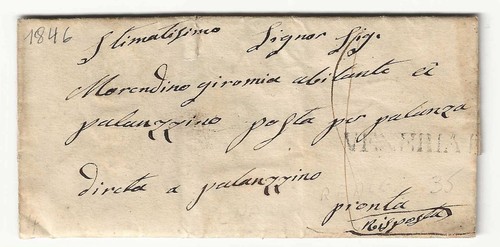 1846
Stimatisimo Signor Sig.
Morendino giromia abilante at
palanzzino posta per palanza
35
direta a palanzzino
pronta
Risposta